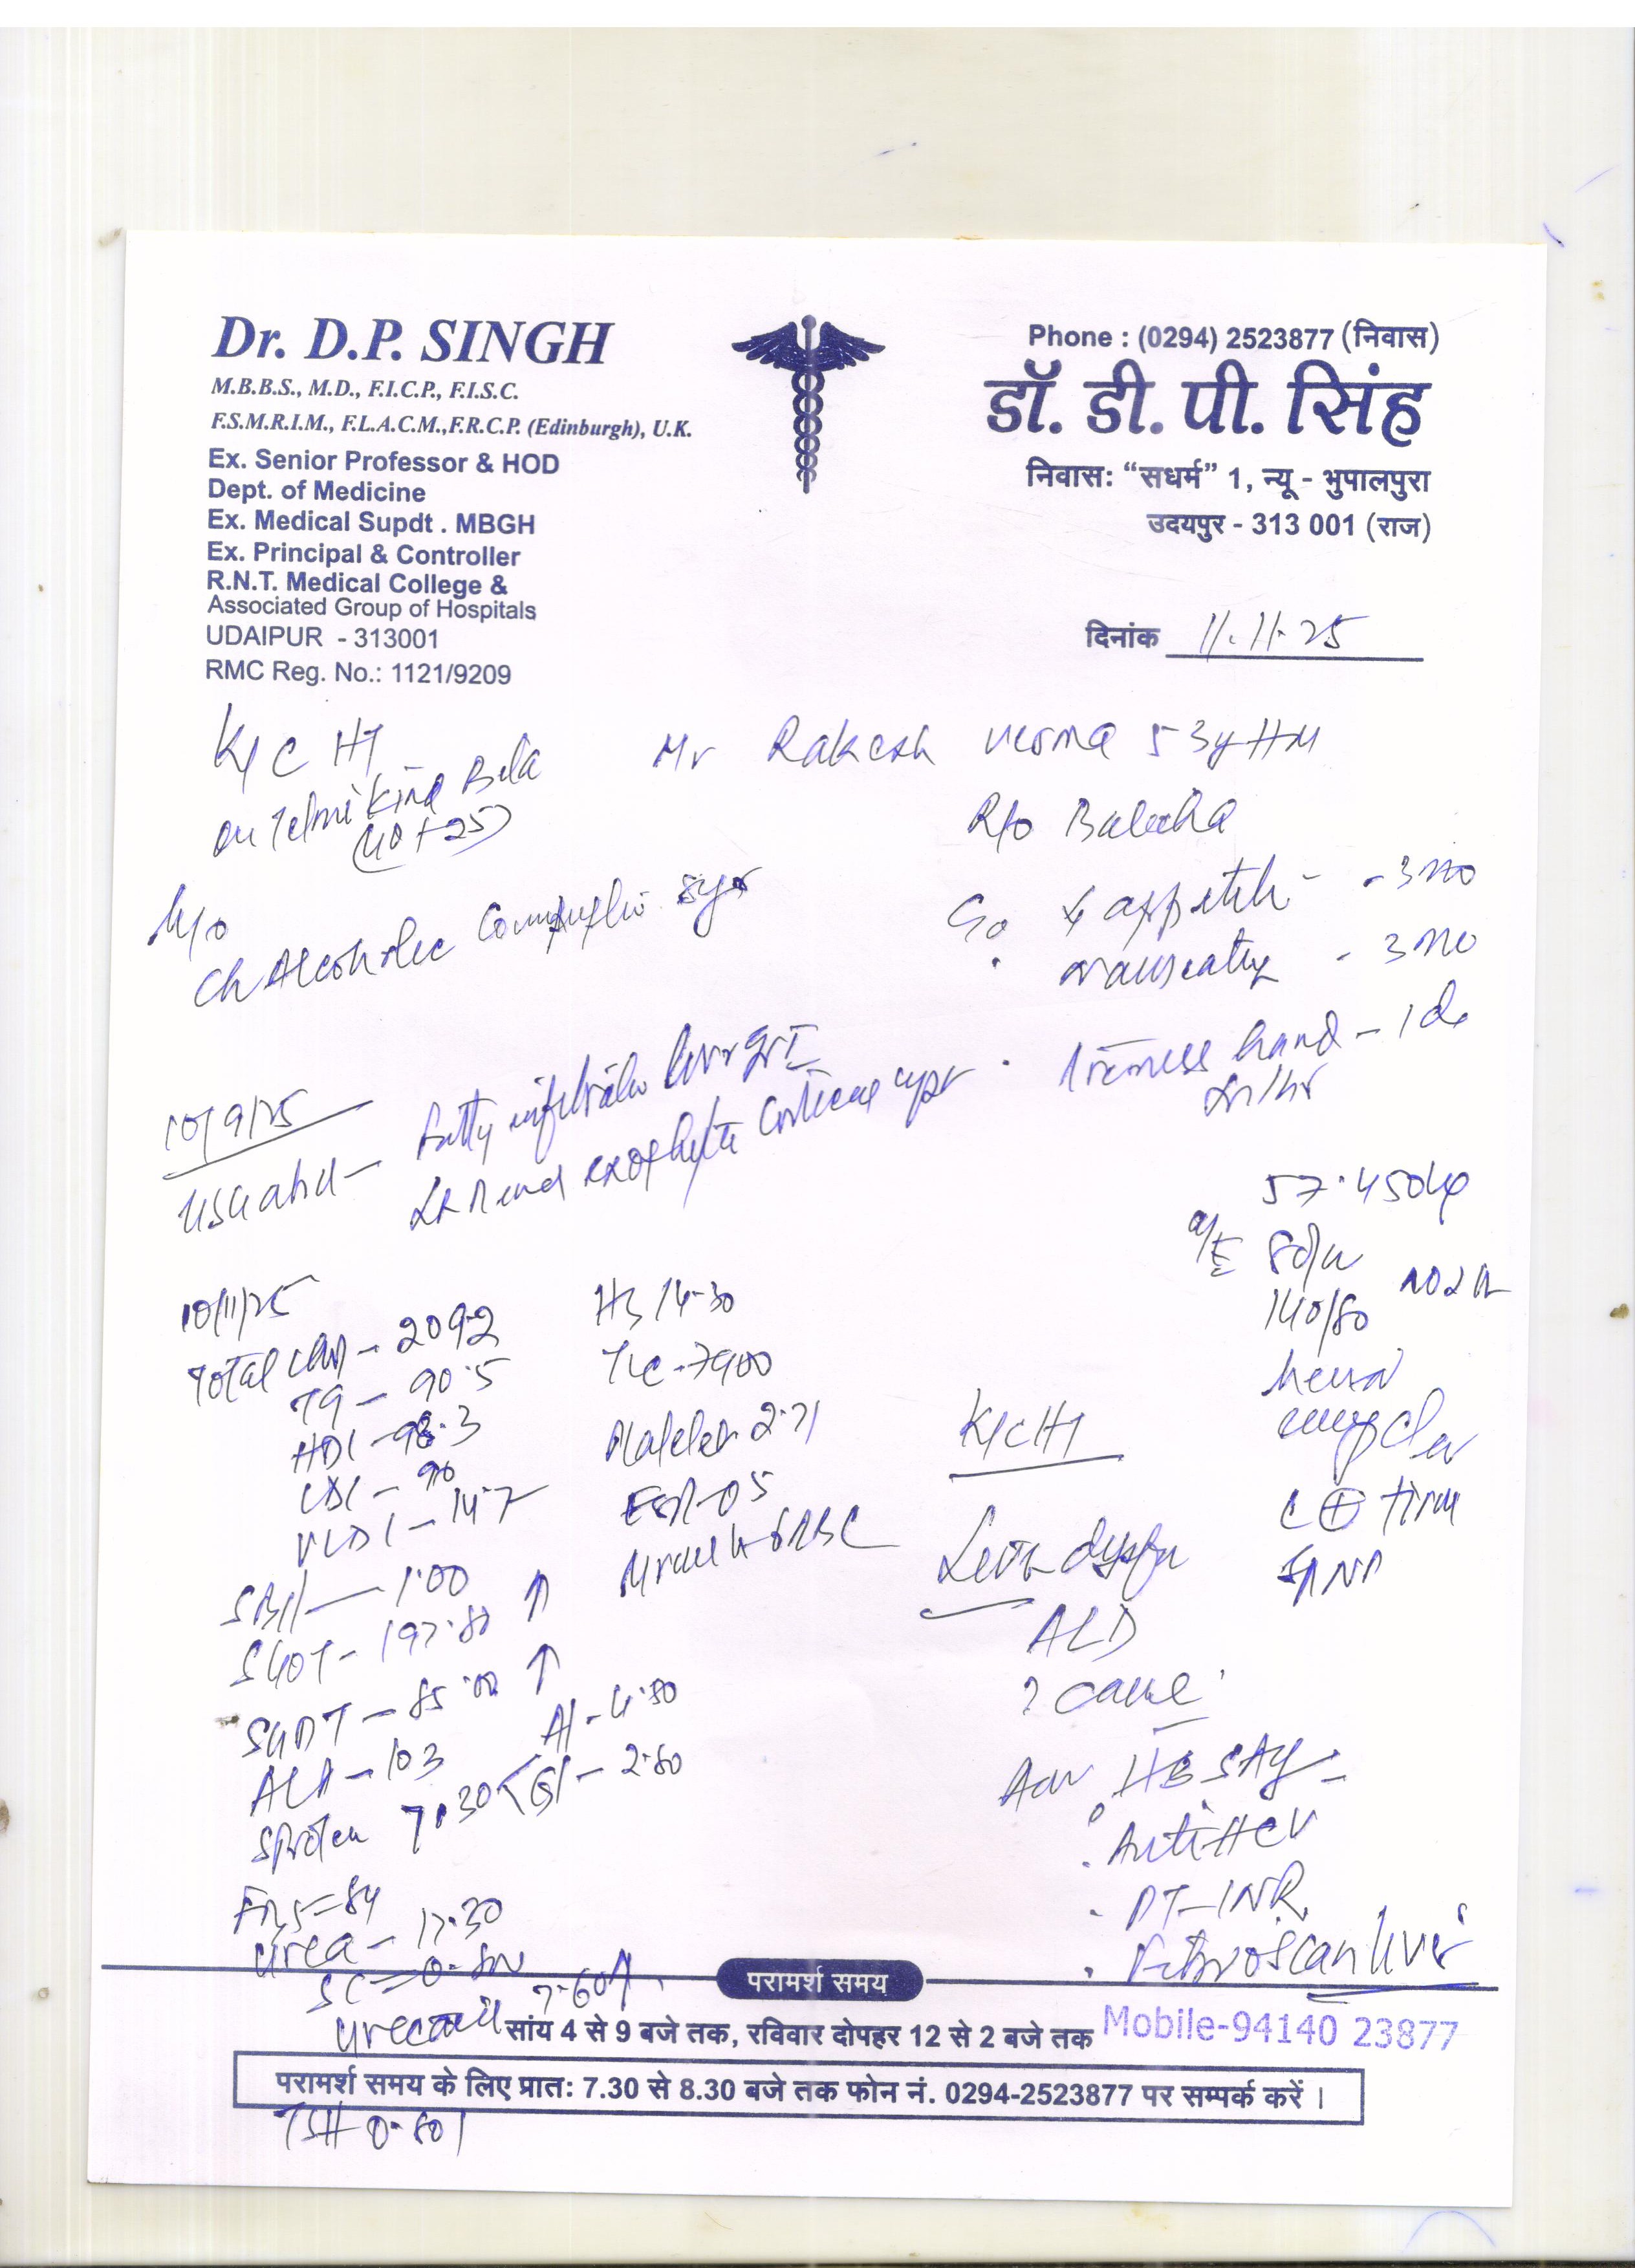 Dr. D.P. SINGH
M.B.B.S., M.D., F.I.C.P., F.I.S.C.
F.S.M.R.I.M., F.L.A.C.M.,F.R.C.P. (Edinburgh), U.K.
Ex. Senior Professor & HOD
Dept. of Medicine
Ex. Medical Supdt . MBGH
Ex. Principal & Controller
R.N.T. Medical College &
Associated Group of Hospitals
UDAIPUR - 313001
RMC Reg. No.: 1121/9209
Phone : (0294) 2523877 (निवास)
डॉ. डी. पी. सिंह
निवास: “सधर्म” 1, न्यू - भुपालपुरा
उदयपुर - 313 001 (राज)
दिनांक 11.11.25
K/C HT
on Telmikind Beta
(40+25)
Mr Rakesh Verma 53y HM
R/o
H/o
Ch Alcoholic 8yr
C/o ↓ appetite - 3mo
- 3mo
hand - 1
10/9/25
USG abd - Fatty infiltration liver gr I
Lt Renal exophytic cortical cyst
57.450kg
O/E 80/m
140/80
10/11/25
Total - 209.2
TG - 90.5
HDL - 98.3
LDL - 96
VLDL - 14.7
SBil - 1.00
SGOT - 197.80 ↑
SGPT - 85.00 ↑
ALP - 103
SProtein 7.30 < Al - 4.50
Gl - 2.80
FBS = 84
Urea - 17.30
SC = 0.80
Uric acid 7.60↑
TSH 0.801
Hb 14.30
TLC - 7900
Platelet 2.71
ESR - 05
K/C HT
Liver dysfn
ALD
? cause
Adv. HBSAg
. Anti HCV
. PT-INR
. Fibroscan liver
परामर्श समय
सांय 4 से 9 बजे तक, रविवार दोपहर 12 से 2 बजे तक
Mobile-94140 23877
परामर्श समय के लिए प्रात: 7.30 से 8.30 बजे तक फोन नं. 0294-2523877 पर सम्पर्क करें ।